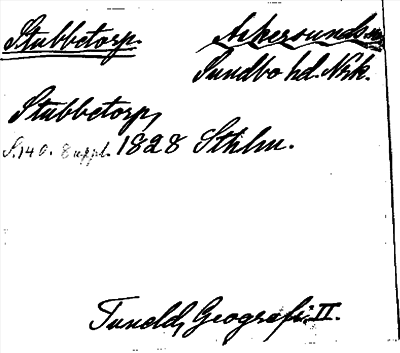 Stubbetorp. Askersunds
Sundbo hd. Nrk.
Stubbetorp,
S. 140. Suppl. 1828 Sthlm.
Tuneld, Geografi. II.